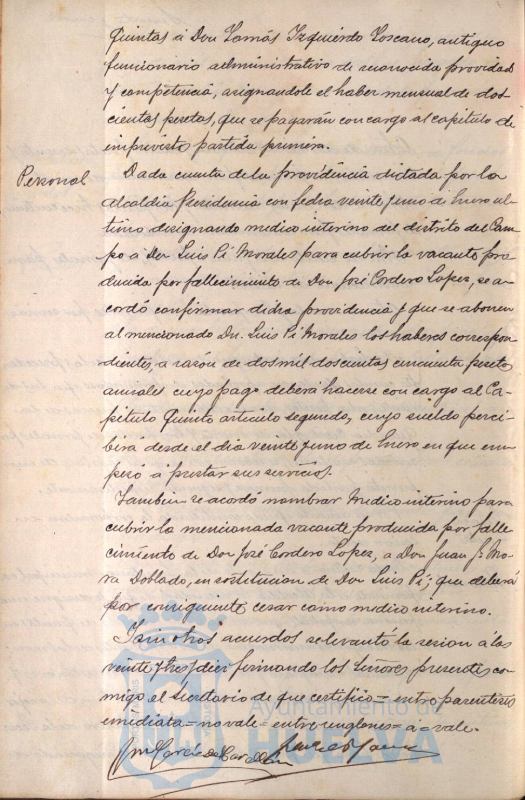 Quintas á Don Tomás Izquierdo Toscano, antiguo
funcionario administrativo de reconocida providad
y competencia, asignandole el haber mensual de dos-
cientas pesetas, que se pagarán con cargo al capítulo de
imprevistos partida primera.
Personal
Dada cuenta de la providencia dictada por la
alcaldía Presidencia con fecha veinte y uno de Enero úl-
timo designando medico interino del distrito del Cam-
po a Don Luis Pí Morales para cubrir la vacante pro-
ducida por fallecimiento de Don José Cordero Lopez, se a-
cordó confirmar dicha providencia y que se abonen
al mencionado Dn. Luis Pí Morales los haberes correspon-
dientes, a razón de dos mil doscientas cincuenta pesetas
anuales cuyo pago deberá hacerse con cargo al Ca-
pítulo Quinto articulo segundo, cuyo sueldo perci-
birá desde el dia veinte y uno de Enero en que em-
pezó á prestar sus servicios.
Tambien se acordó nombrar Medico interino para
cubrir la mencionada vacante producida por falle-
cimiento de Don José Cordero Lopez, a Don Juan J. Mo-
ra Doblado, en sostitucion de Don Luis Pí; que deberá
por consiguiente cesar como medico interino.
Y sin otros acuerdos se levantó la sesion á las
veinte y tres y diez firmando los Señores presentes co-
migo el Secretario de que certifico = entre parentesis
inmediata = no vale = entre renglones = a = vale.
Ayuntamiento de
HUELVA